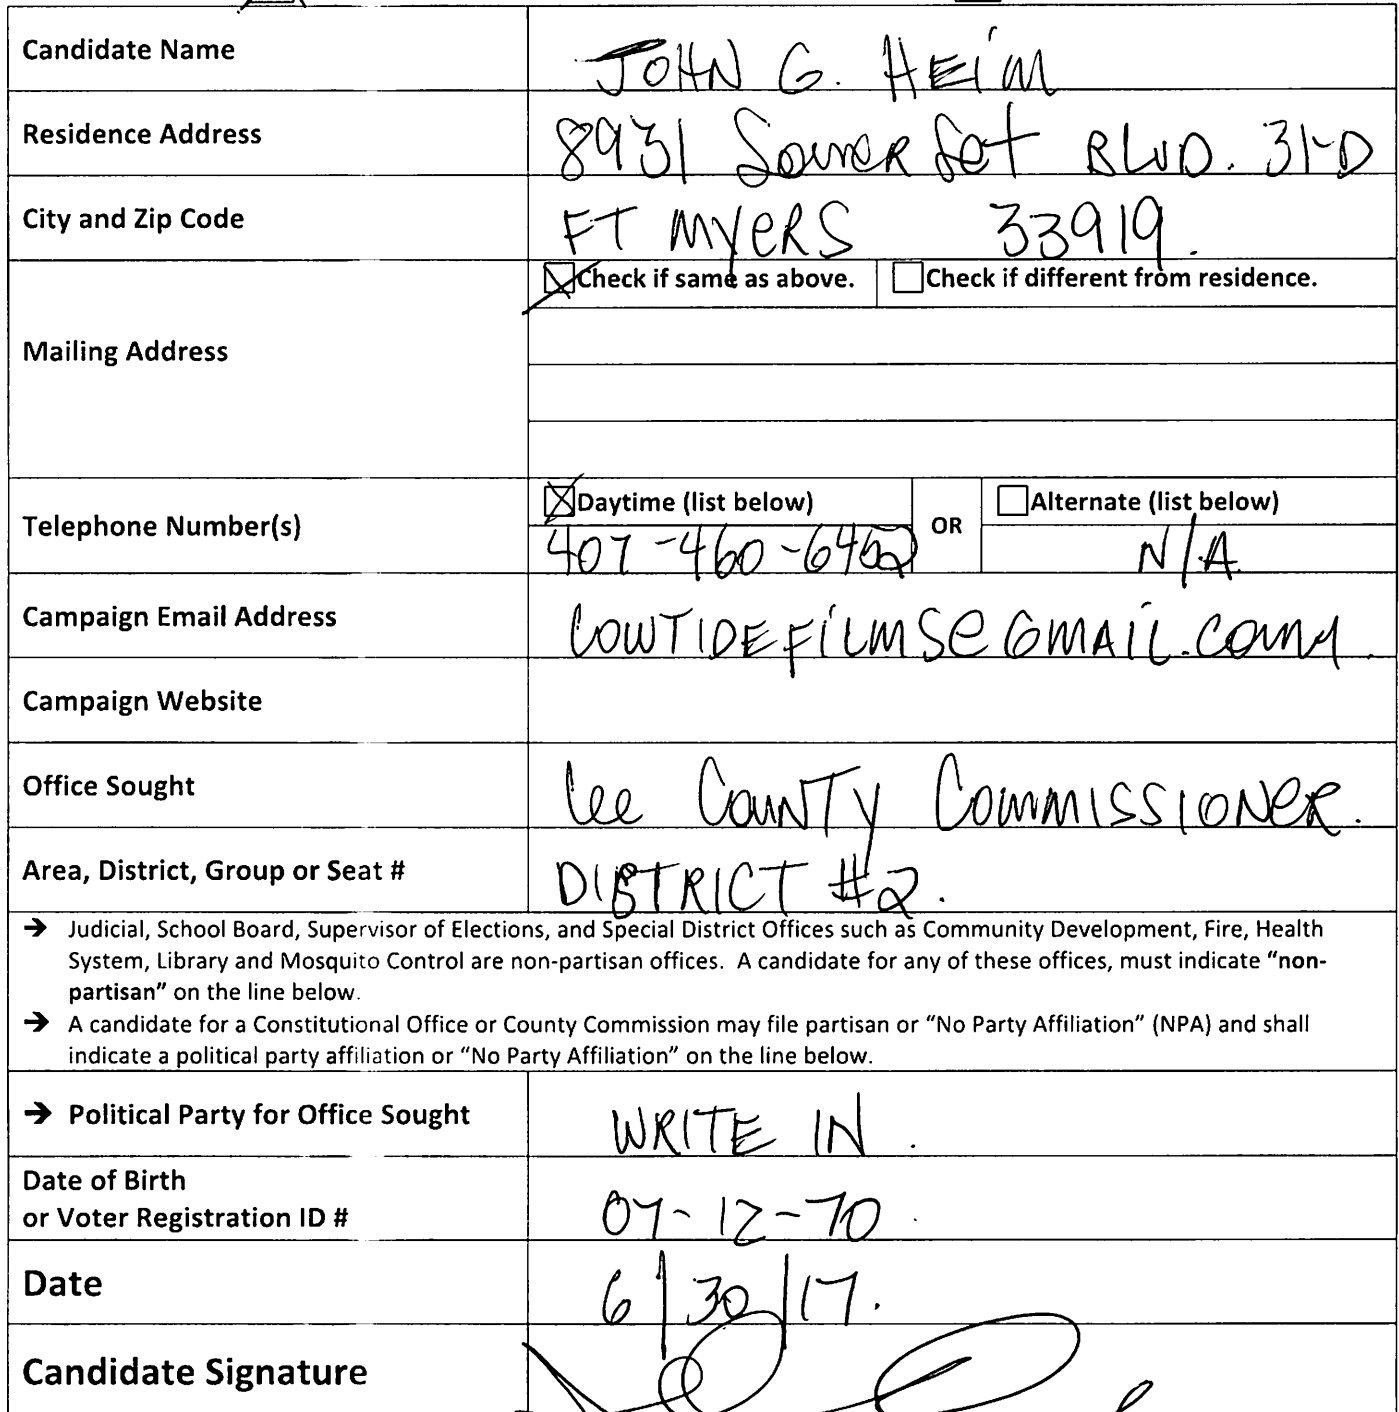 Candidate Name JOHN G. HEIM
Residence Address 8931 Somerset BLVD. 31-D
City and Zip Code FT MYERS 33919.
Check if same as above. Check if different from residence.
Mailing Address
Daytime (list below) Alternate (list below)
Telephone Number(s) OR
407-460-6452 N/A
Campaign Email Address LOWTIDEFILMS@GMAIL.COM
Campaign Website
Office Sought Lee COUNTY COMMISSIONER.
Area, District, Group or Seat # DISTRICT #2.
→ Judicial, School Board, Supervisor of Elections, and Special District Offices such as Community Development, Fire, Health
System, Library and Mosquito Control are non-partisan offices. A candidate for any of these offices, must indicate "non-
partisan" on the line below.
→ A candidate for a Constitutional Office or County Commission may file partisan or "No Party Affiliation" (NPA) and shall
indicate a political party affiliation or "No Party Affiliation" on the line below.
→ Political Party for Office Sought WRITE IN.
Date of Birth
or Voter Registration ID # 07-12-70
Date 6/30/17.
Candidate Signature